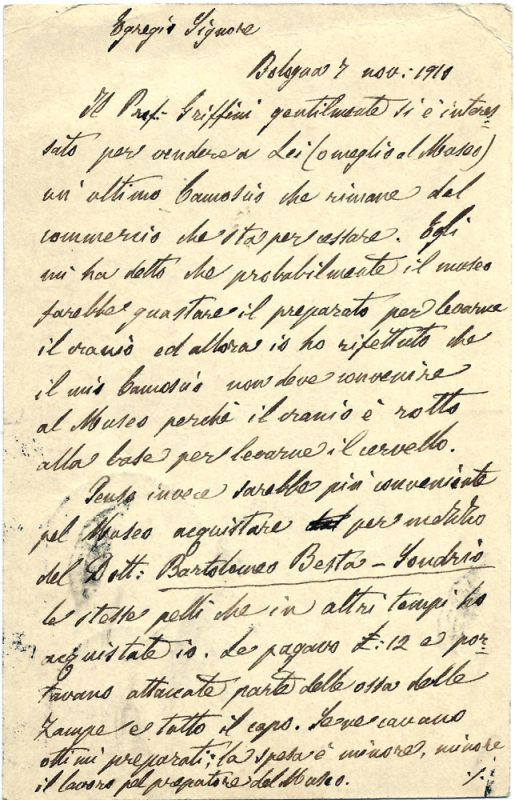 Egregio Signore
Bologna 7 nov: 1911
Il Prof. Griffini gentilmente si è interes-
sato per vendere a Lei (o meglio al Museo)
un' ultimo Camoscio che rimane del
commercio che sta per cessare. Egli
mi ha detto che probabilmente il museo
farebbe guastare il preparato per levarne
il cranio ed allora io ho riflettuto che
il mio Camoscio non deve convenire
al Museo perchè il cranio è rotto
alla base per levarne il cervello.
Penso invece sarebbe più conveniente
pel Museo acquistare per mezzo
del Dott: Bartolomeo Besta - Sondrio
le stesse pelli che in altri tempi ho
acquistate io. Le pagavo £: 12 e por-
tavano attaccate parte delle ossa delle
zampe e tutto il capo. Se ne cavano
ottimi preparati; la spesa è minore, minore
il lavoro pel preparatore del Museo. ./.